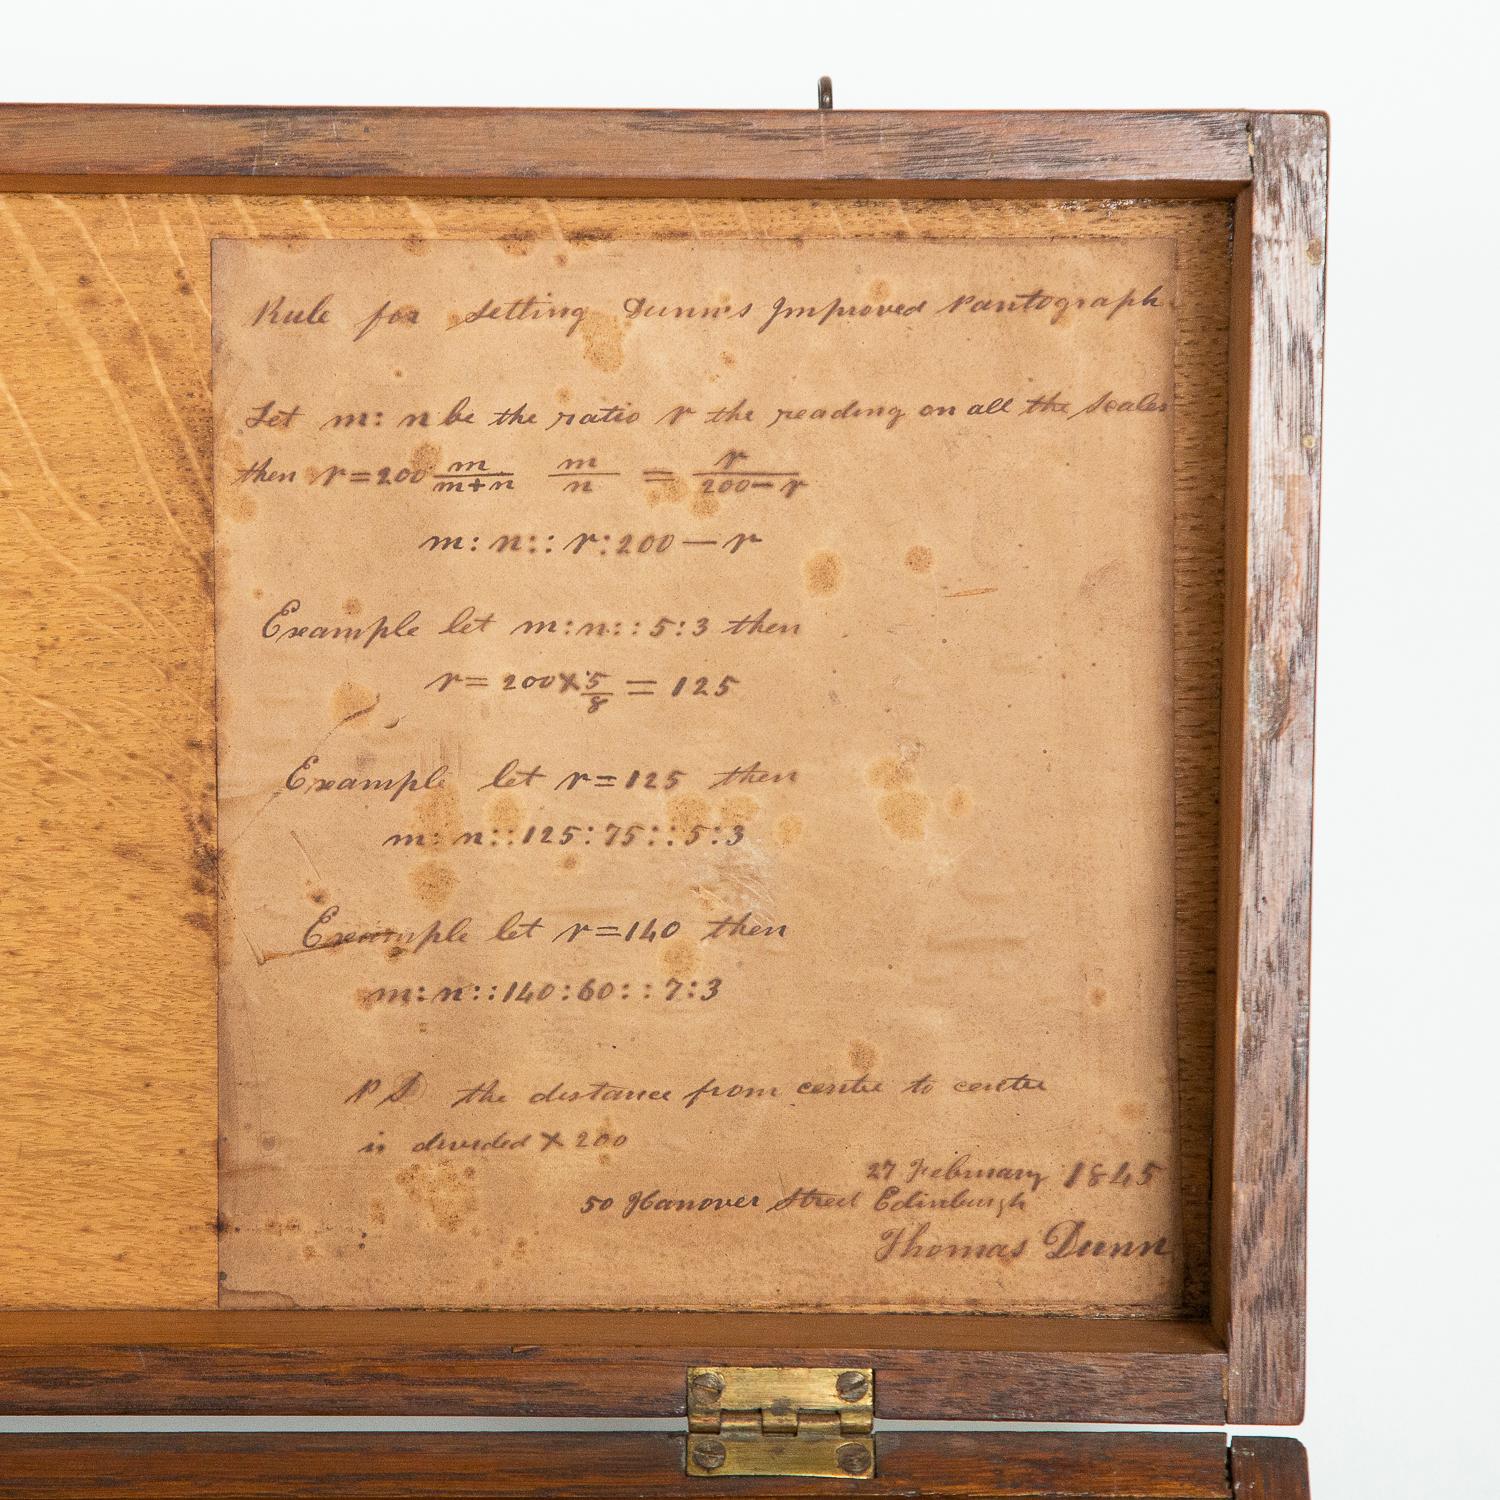 Rule for setting Dunn's Improved Pantograph
Let m : n be the ratio r the reading on all the scales
then r = 200 m/m+n   m/n = r/200–r
m : n :: r : 200 — r
Example let m : n :: 5 : 3 then
r = 200 × 5/8 = 125
Example let r = 125 then
m : n :: 125 : 75 :: 5 : 3
Example let r = 140 then
m : n :: 140 : 60 :: 7 : 3
P S the distance from centre to centre
is divided × 200
27 February 1845
50 Hanover Street Edinburgh
Thomas Dunn